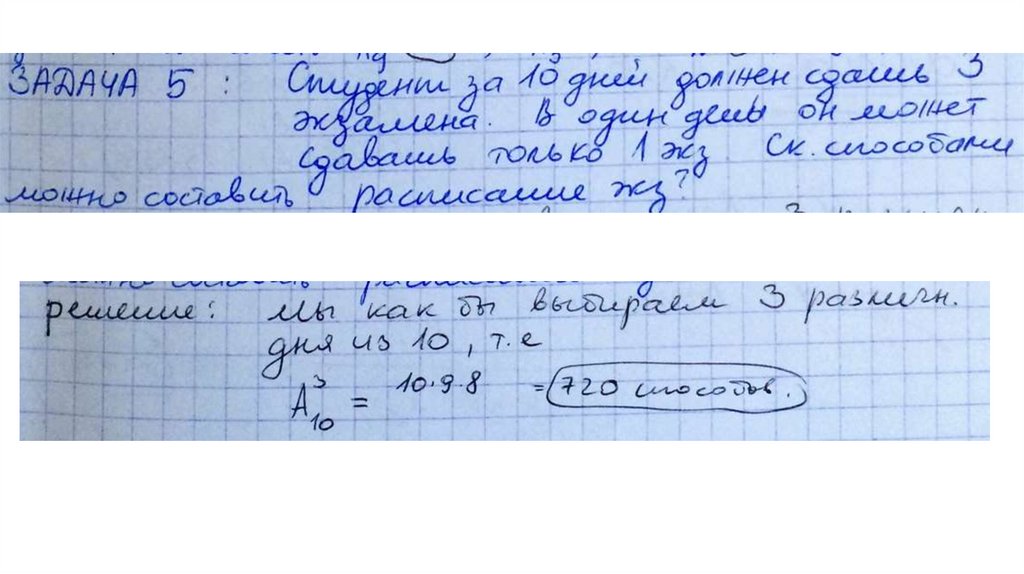 ЗАДАЧА 5 : Студент за 10 дней должен сдать 3
экзамена. В один день он может
сдавать только 1 экз Ск. способами
можно составить расписание экз?
решение: Мы как бы выбираем 3 различн.
дня из 10, т.е
A³₁₀ = 10·9·8 = 720 способов.